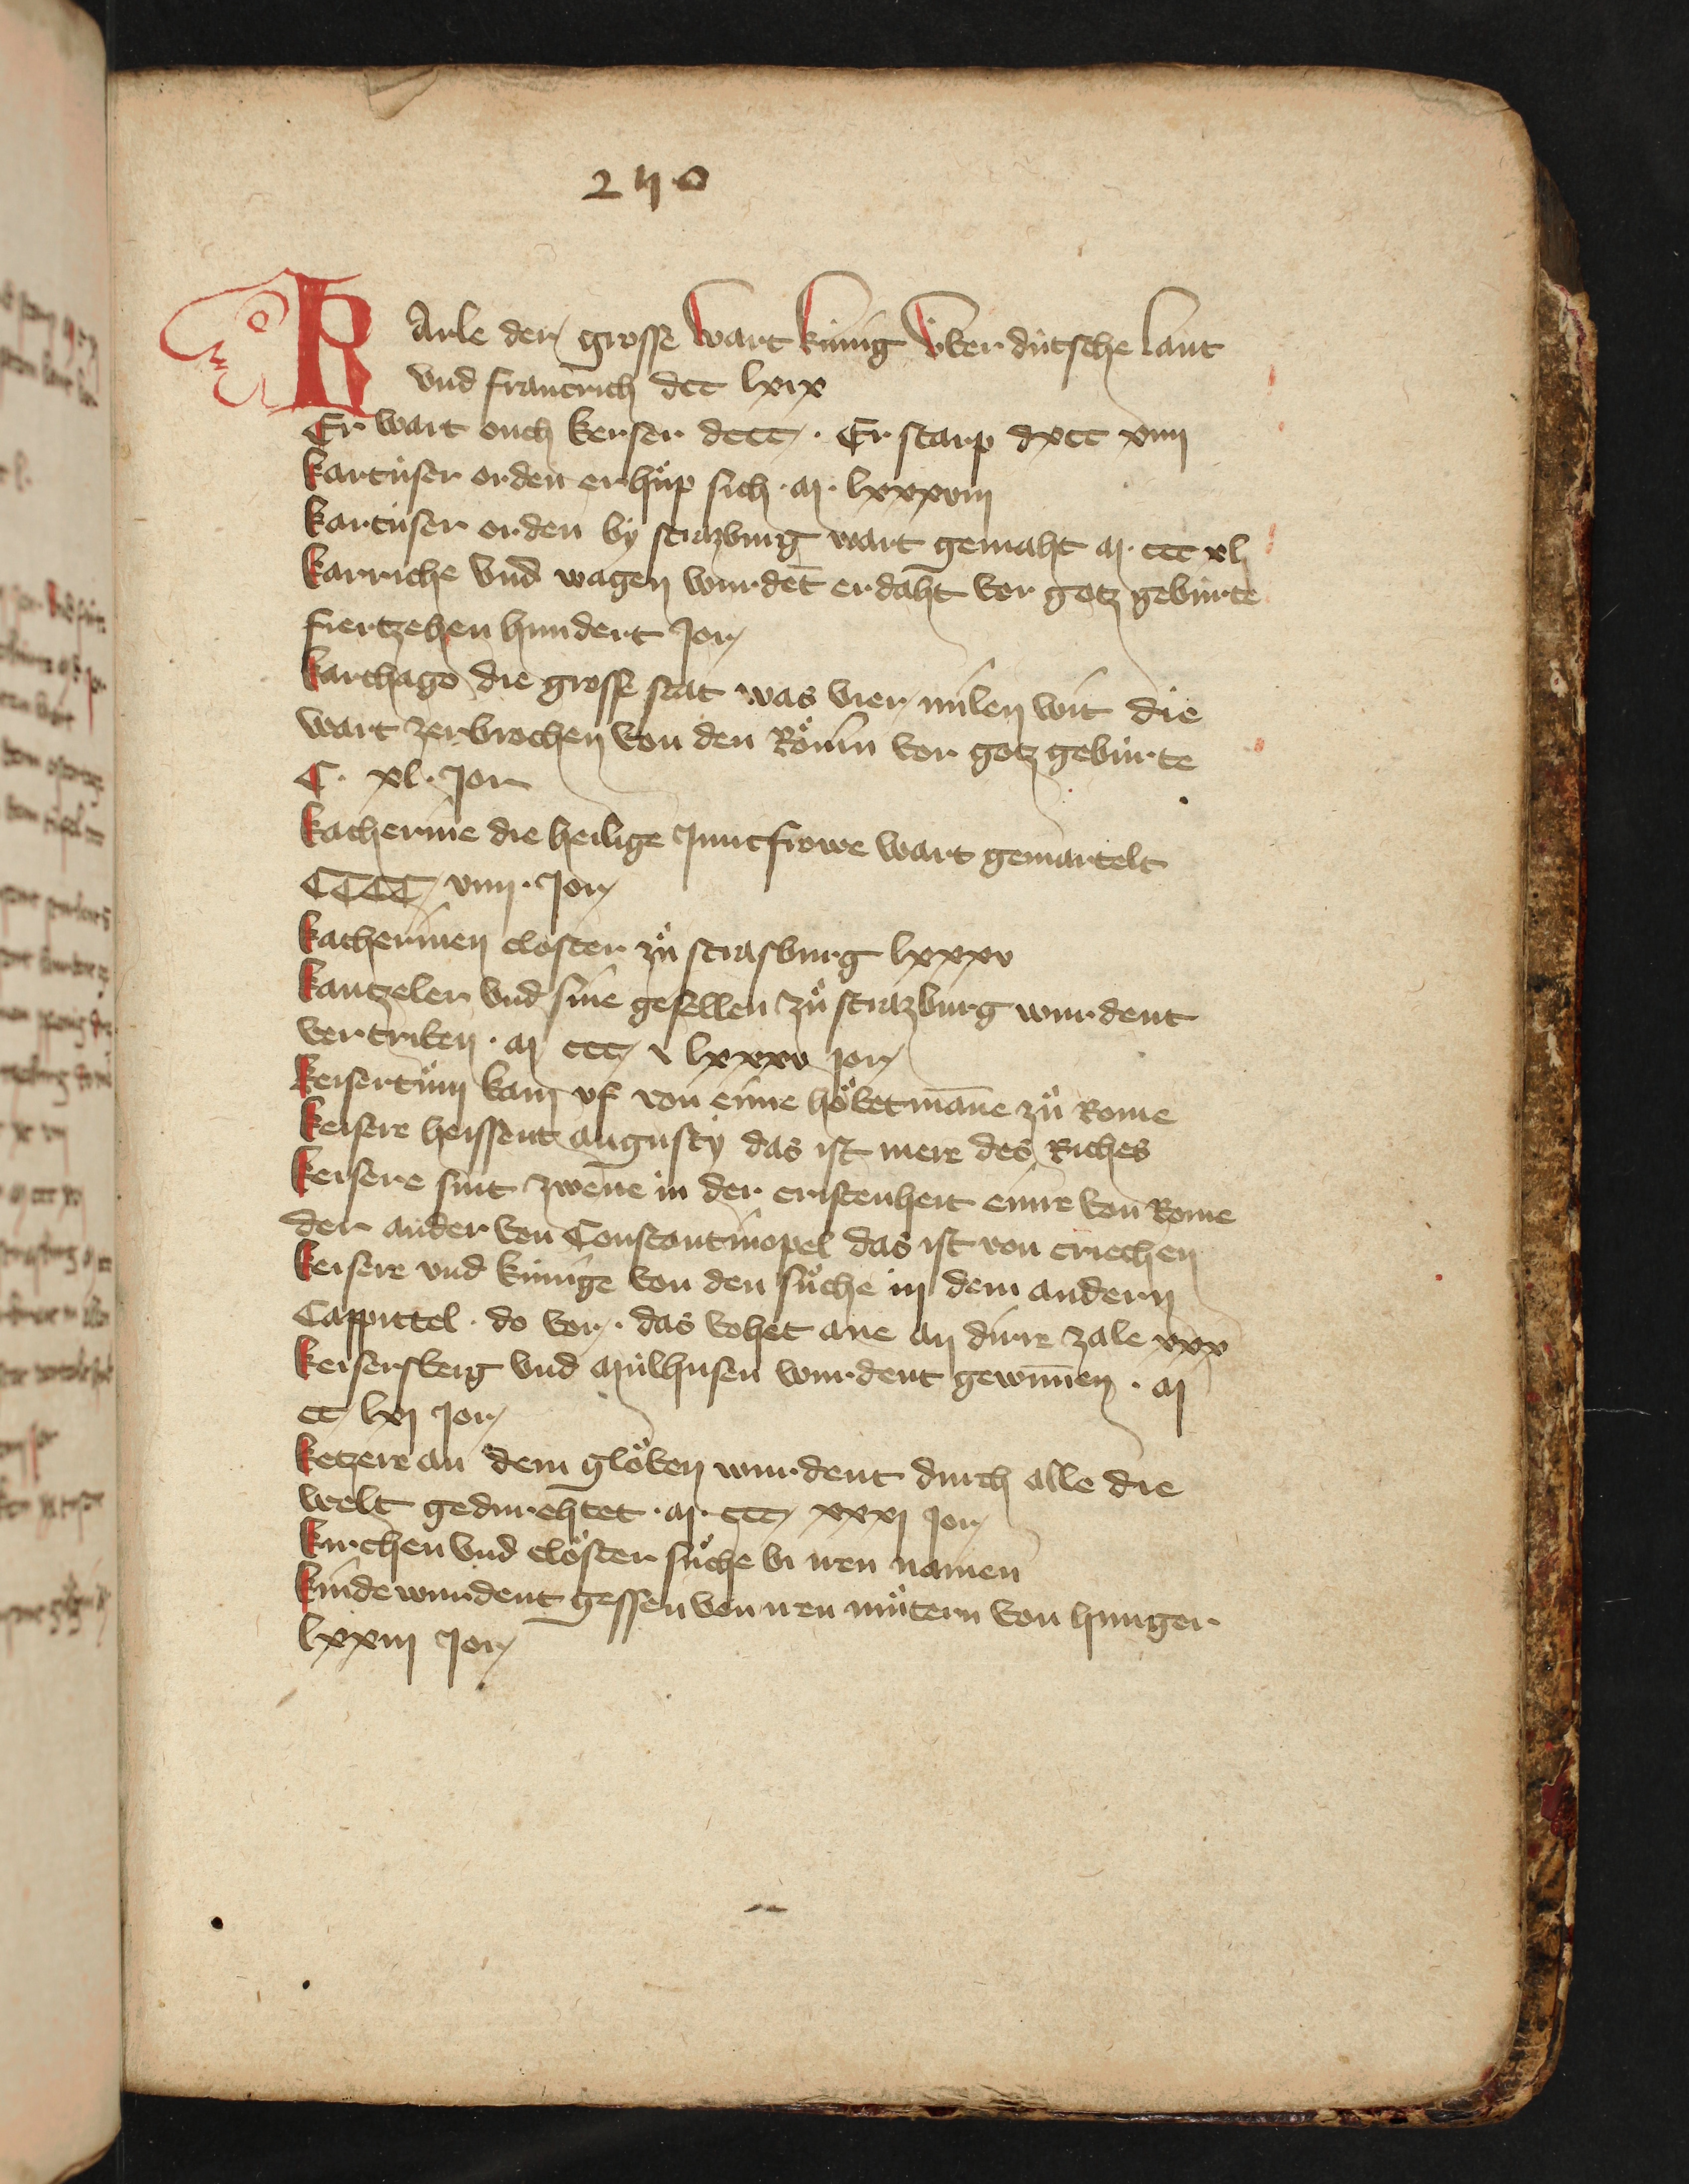 240
KArle der grosse wart kúnig v́ber dútsche lant
vnd franckrich dcc lxix
Er wart ouch keyser dccc . Er starp dxcc xiiii
kartúser orden erhůp sich . M . lxxxviii
kartúser orden bý strazburg wart gemaht M . ccc xl
karriche vnd wagen wurdēt erdaht vor gotz gebúrte
fiertzehen hundert Jor
karthago die grosse stat was vier milen wit die
wart zerbrochen von den Rôm̄n vor gotz gebúrte
C . xl . Jor
katherine die heilige Juncfrowe wart gemartelt
CCCC viiii . Jor
katherinen closter zů strasburg lxxxv
kantzeler vnd sine gesellen zů strazburg wurdent
vertriben . M ccc v lxxxv Jor
keisertům kam vf von eime hôbetmāne zů Rome
keisere heissent augustý das ist mere des Riches
keisere sint zwene in der cristenheit einre von Rome
der ander von Constantinopel das ist von criechen
keisere vnd kúnige von den sůche in dem andern
Cappittel . do vor . das vohet ane an dirre zale xxx
keisersberg vnd Múlhusen wurdent gewunnen . M
cc lxi Jor
ketzere an dem glôben wurdent durch alle die
welt gedurehtet . M . ccc xxxi Jor
kirchen vnd clôster sůche bi iren namen
kinde wurdent gessen von iren můtern von hunger
lxxiii Jor